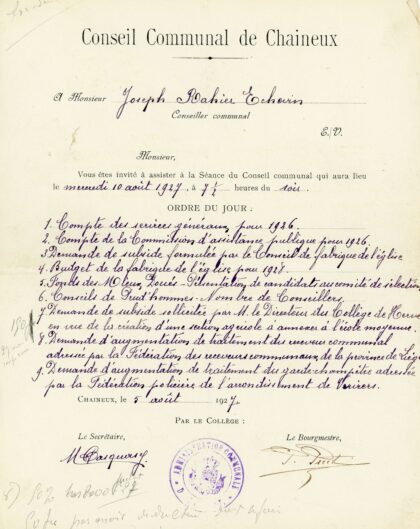 Conseil Communal de Chaineux
A Monsieur Joseph Rahier Echevin
Conseiller communal
E/V.
Monsieur,
Vous êtes invité à assister à la Séance du Conseil communal qui aura lieu
le mercredi 10 août 1927, à 7 ½ heures du soir.
ORDRE DU JOUR :
1. Compte des services généraux pour 1926.
2. Compte de la Commission d'assistance publique pour 1926.
3 Demande de subside formulée par le Conseil de fabrique de l'église
4. Budget de la fabrique de l'église pour 1928.
5. Fonds des Présentation de candidats au comité de sélection
6. Conseils de Prud'hommes. Nombre de Conseillers.
7 Demande de subside sollicitée par M. le Directeur du Collège de Herve
en vue de la création d'une section agricole à annexer à l'école moyenne.
8. Demande d'augmentation de traitement du receveur communal
adressée par la Fédération des receveurs communaux de la province de Liége
9. Demande d'augmentation de traitement du garde-champêtre adressée
par la Fédération policière de l'arrondissement de Verviers.
CHAINEUX, le 5 août 1927.
PAR LE COLLÈGE :
Le Secrétaire,
Le Bourgmestre,
ADMINISTRATION COMMUNALE